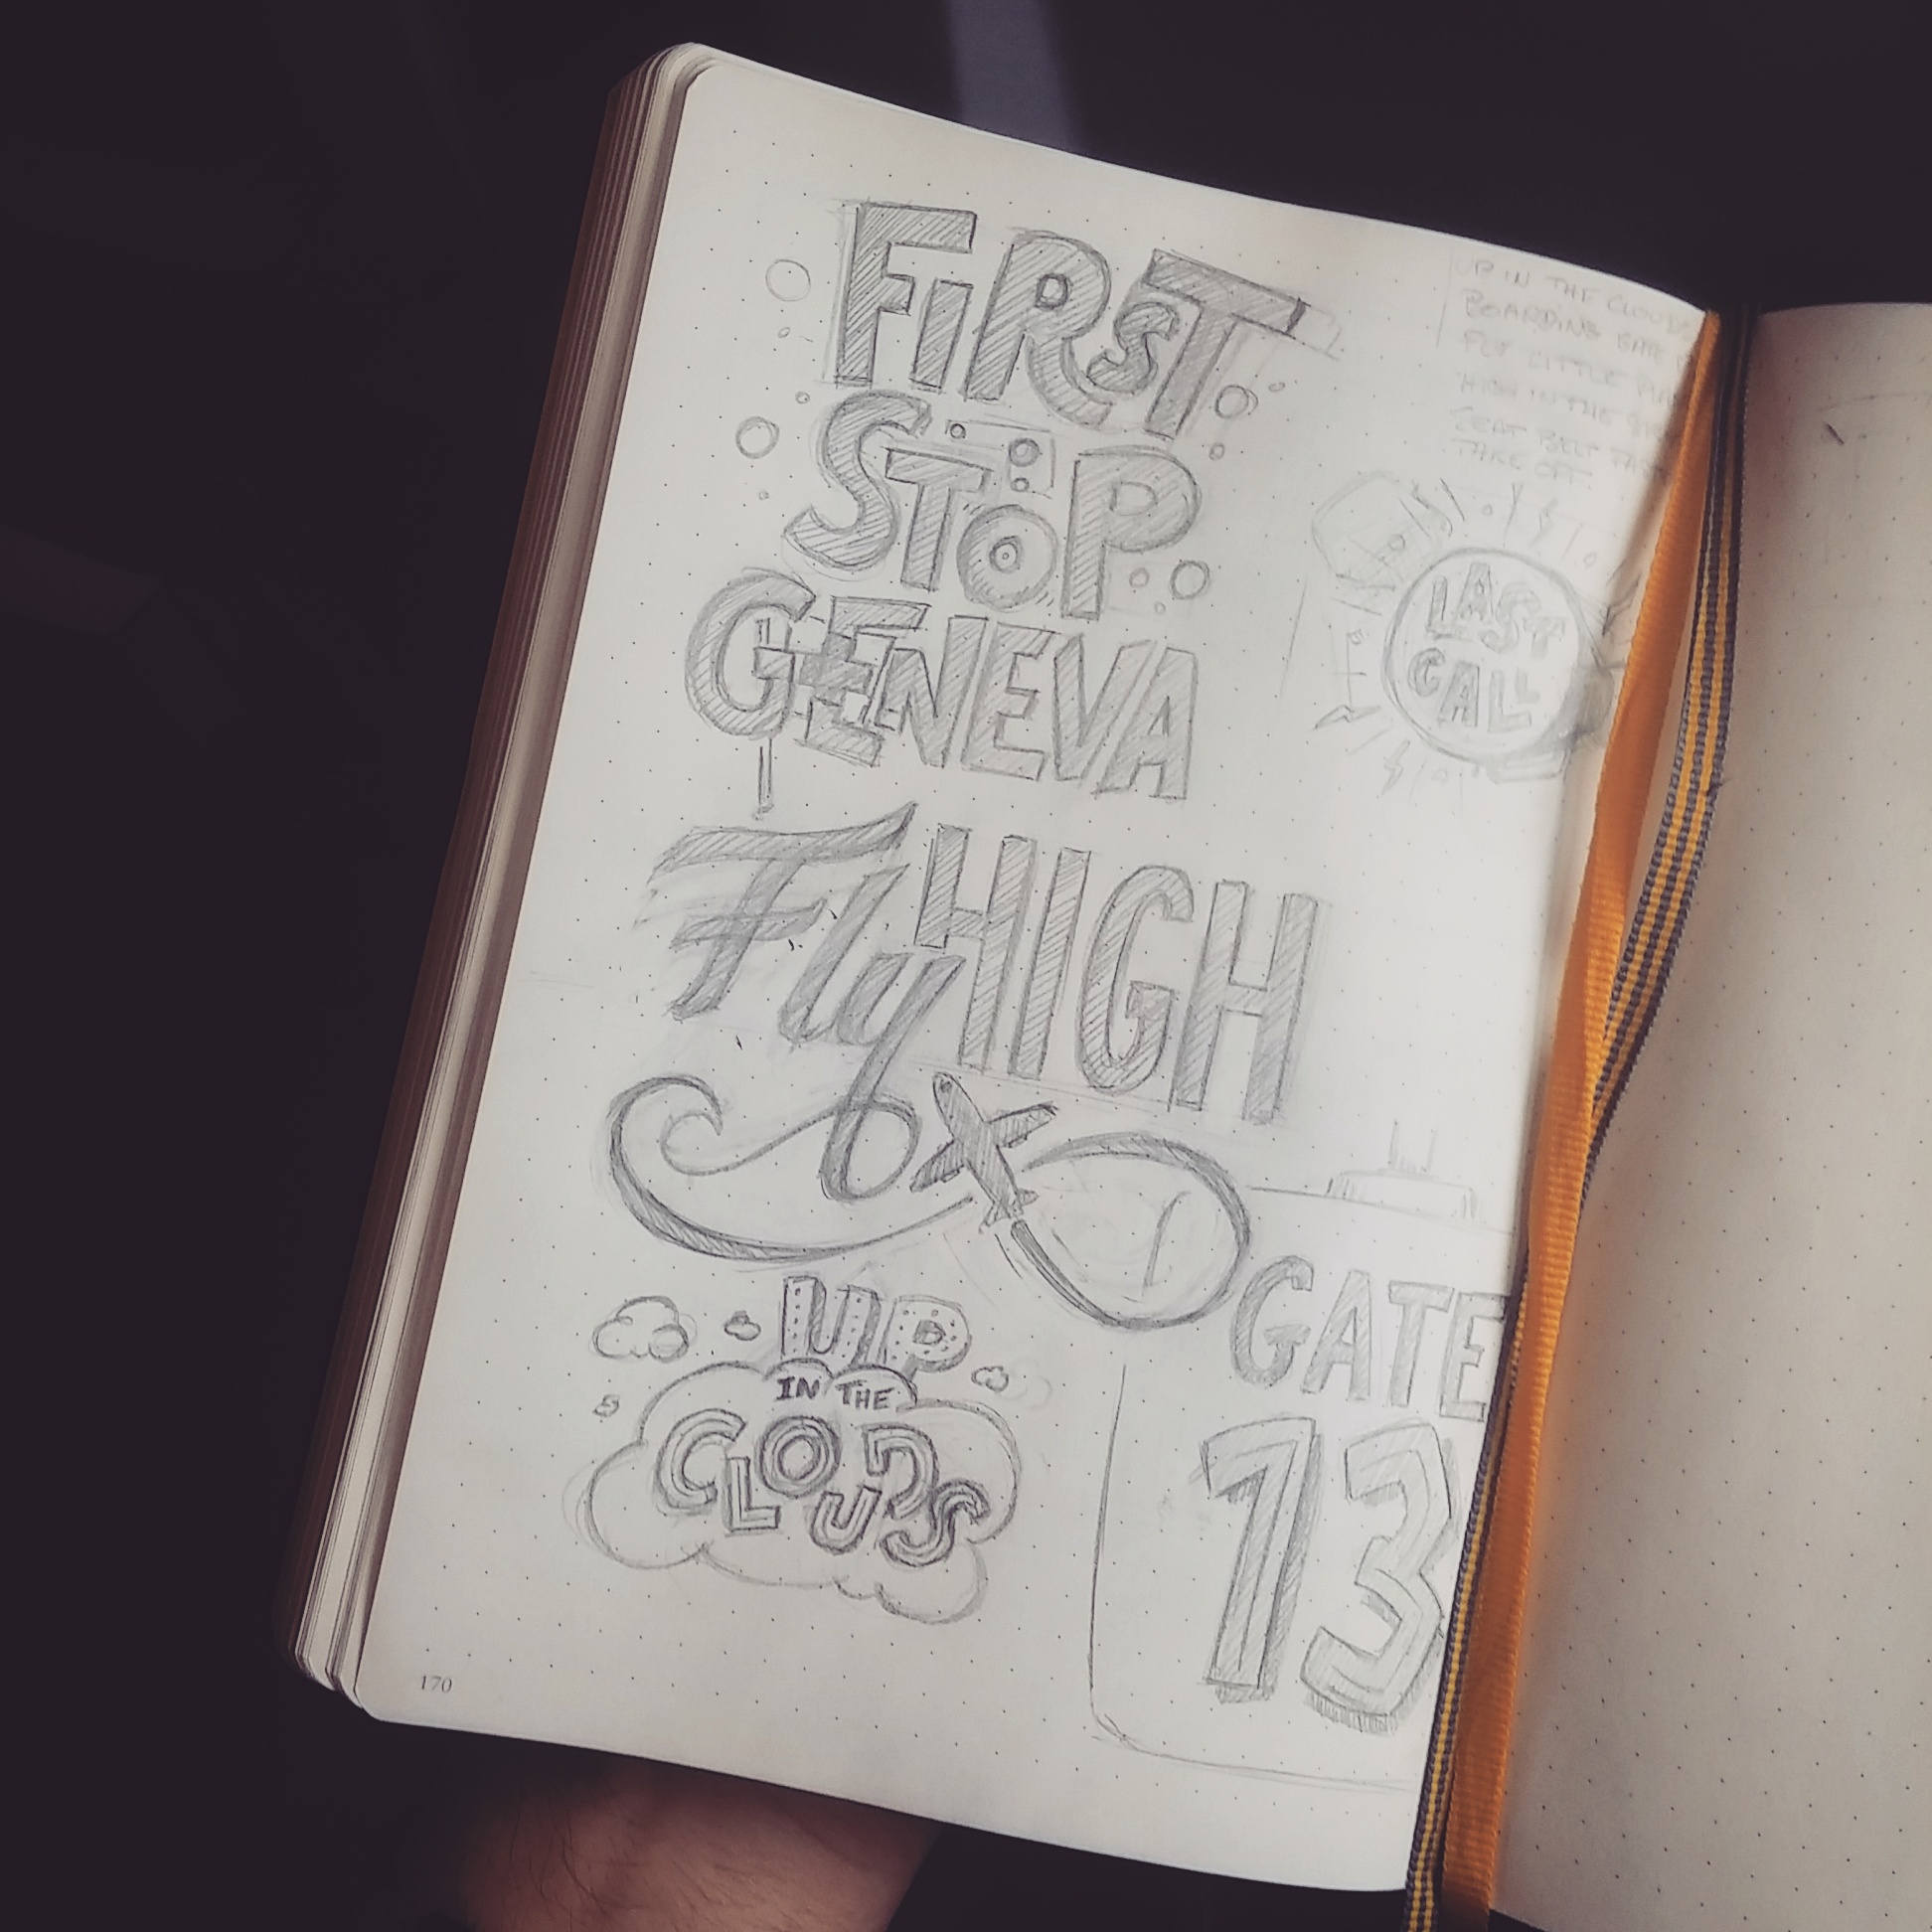 FiRST
STOP
GENEVA
UP IN THE CLOUDS
BOARDING GATE
FLY LITTLE
HIGH IN THE
TAKE OFF
LAST
CALL
Fly HIGH
UP
IN THE
CLOUDS
GATE
13
170